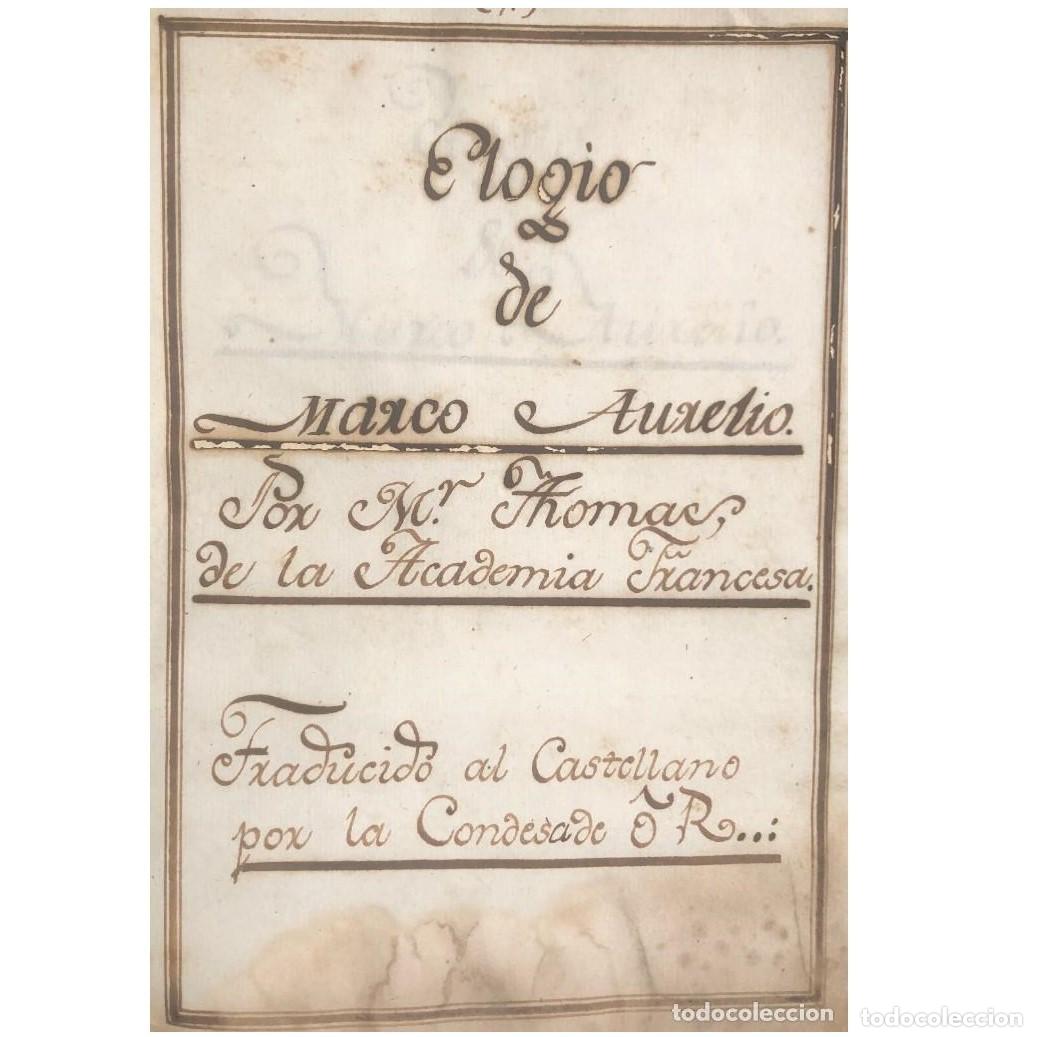 Elogio
de
Marco Aurelio.
Por Mr. Thomas,
de la Academia Francesa.
Traducido al Castellano
por la Condesa de õ R...:
todocoleccion
todocoleccion